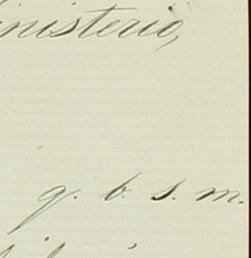 inisterio,
q. b. s. m.